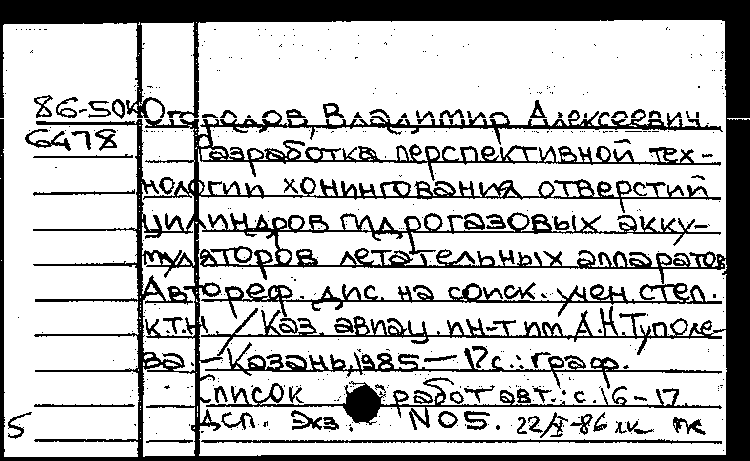 86-50к Огородов, Владимир Алексеевич
6478
Разработка перспективной тех-
нологии хонингования отверстий
цилиндров гидрогазовых акку-
муляторов летательных аппаратов
Автореф. дис. на соиск. учен. степ.
к.т.н. / Каз. авиац. ин-т им. А.Н. Туполе-
ва. – Казань, 1985. – 17с.: граф.
Список работ авт.: с. 16-17
5 Дсп. Экз. N05. 22/X-86